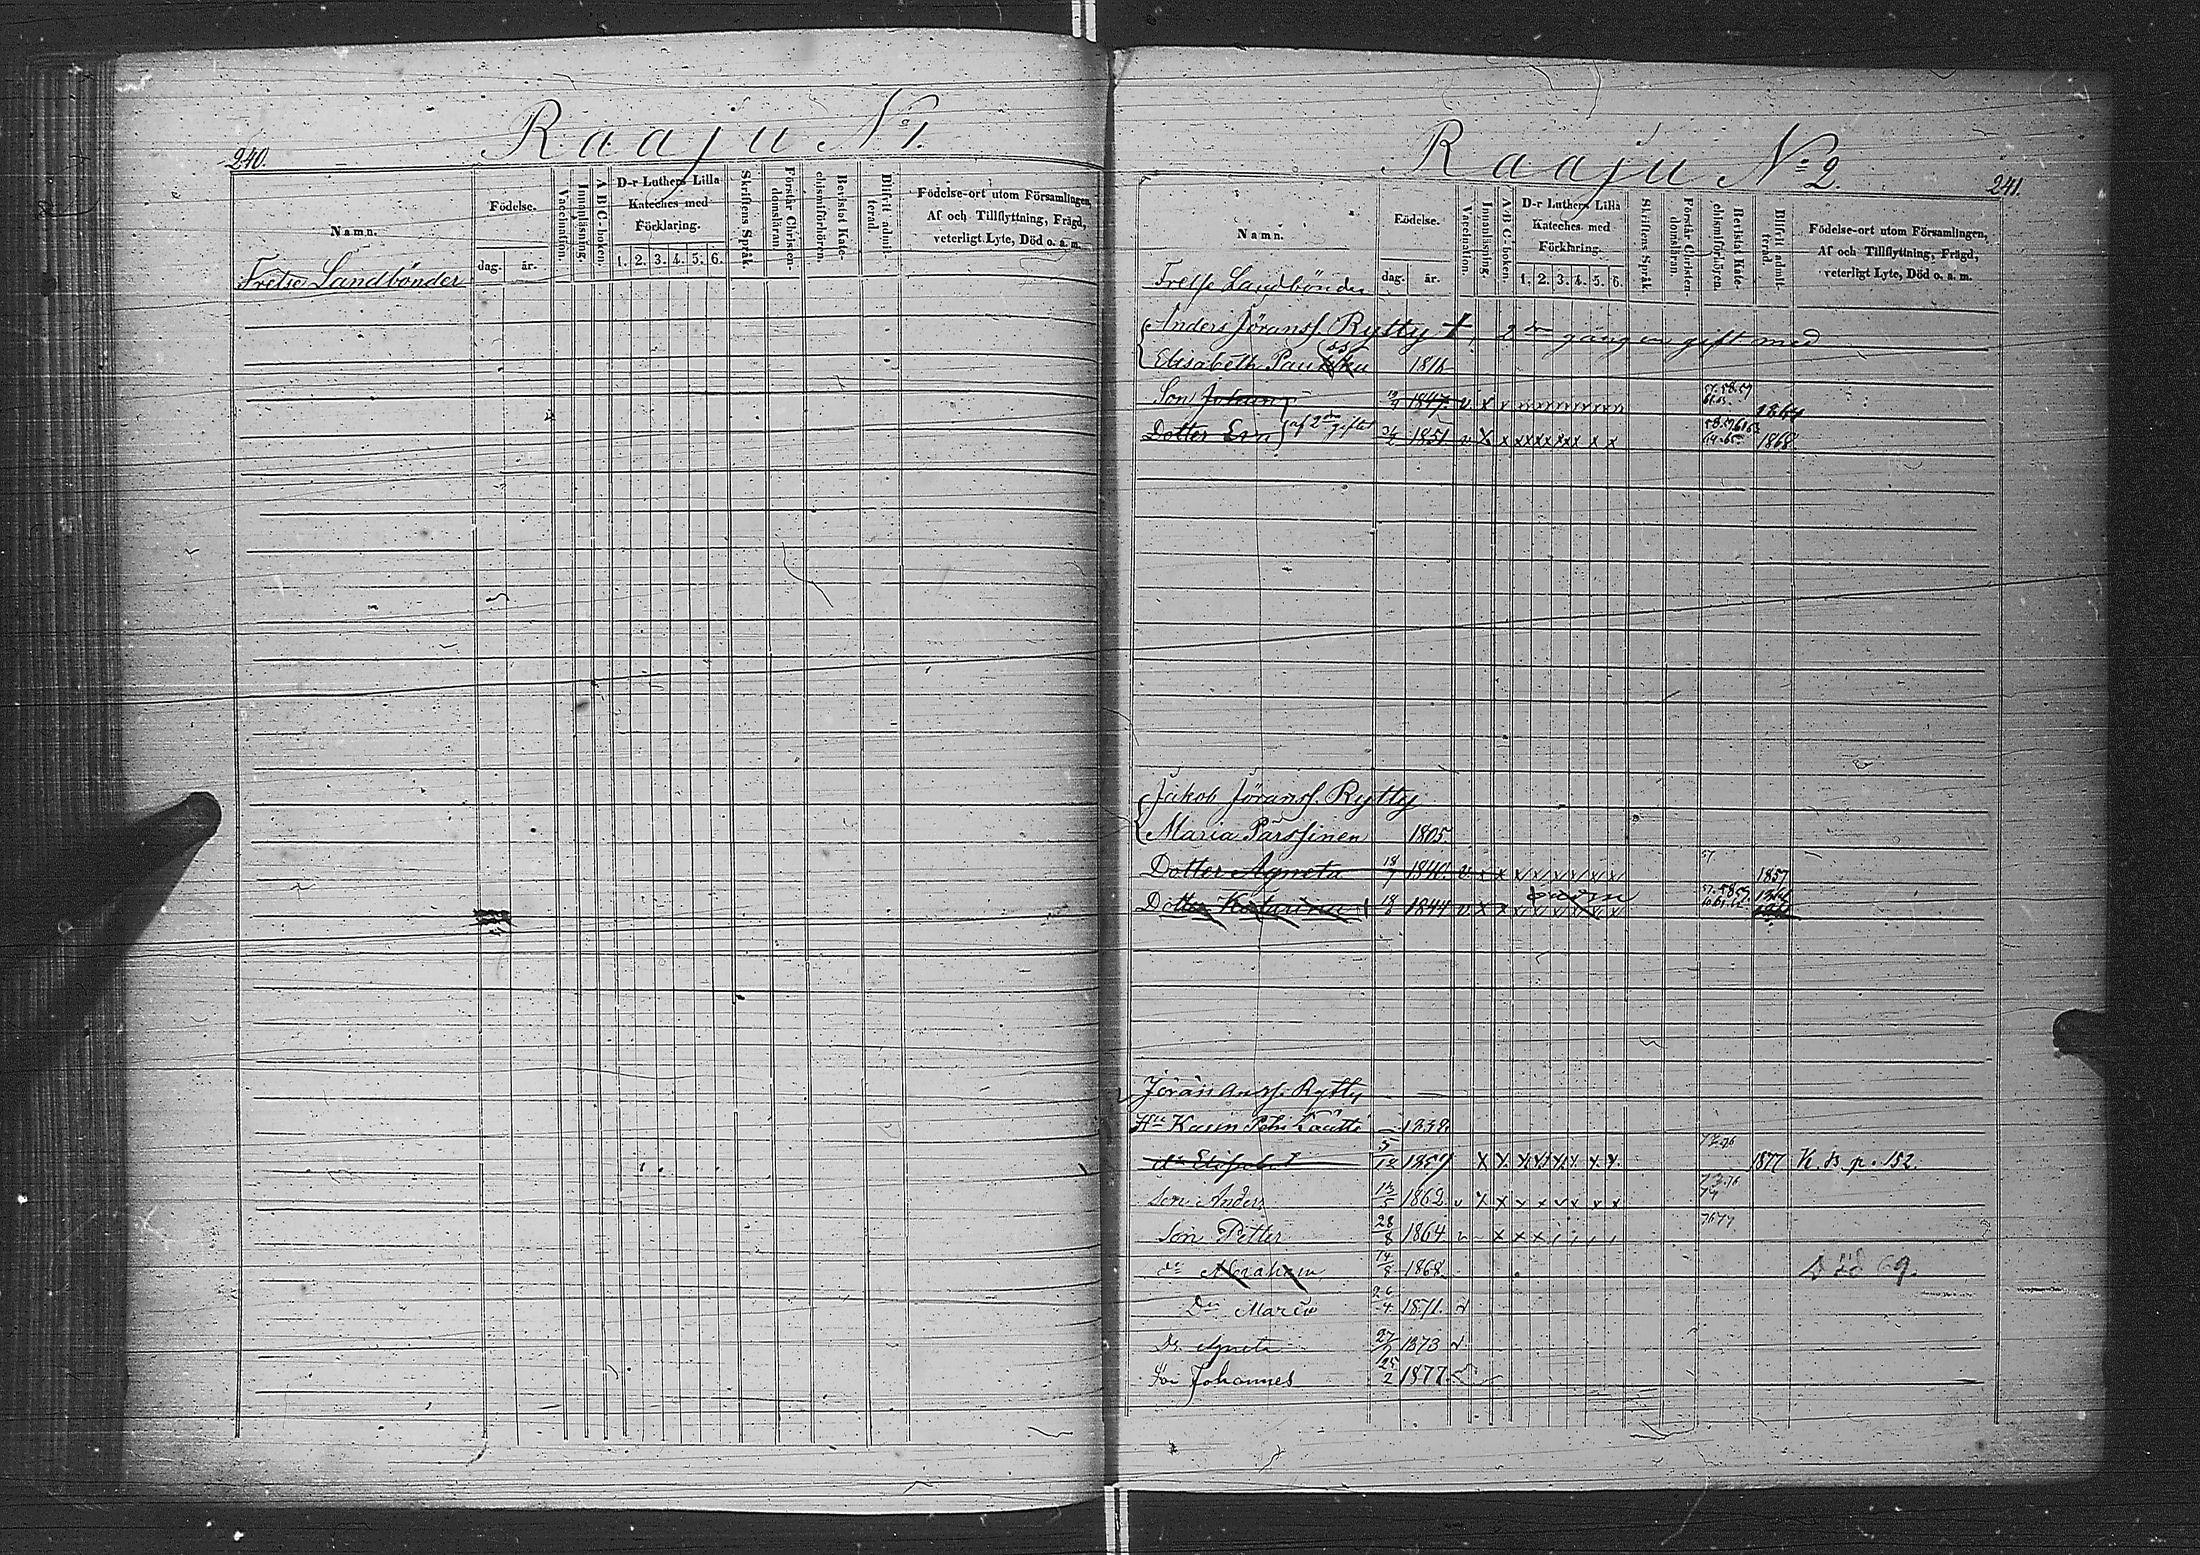 240.
Raaju No 1.
Namn.
Födelse.
dag. år.
Vaccination.
Innanläsning.
A B C-boken.
D-r Luthers Lilla Kateches med Förklaring.
1. 2. 3. 4. 5. 6.
Skriftens Språk.
Förstår Christendomsläran.
Bevistat Katechismiförhören.
Blifvit admitterad.
Födelse-ort utom Församlingen, Af och Tillflyttning, Frägd, veterligt Lyte, Död o. a. m.
Frelse Landbönder
Raaju No 2.
241.
Namn.
Födelse.
dag. år.
Vaccination.
Innanläsning.
A B C-boken.
D-r Luthers Lilla Kateches med Förklaring.
1. 2. 3. 4. 5. 6.
Skriftens Språk.
Förstår Christendomsläran.
Bevistat Katechismiförhören.
Blifvit admitterad.
Födelse-ort utom Församlingen, Af och Tillflyttning, Frägd, veterligt Lyte, Död o. a. m.
Frelse Landbönder
Anders Jöranss. Rytty +, 2dra gången gift med
Elisabeth 1816
Son Johan 1847. v x 57.58.59 1864
Dotter Eva af 2dra giftet 1851 v x x x x x x x x x 1868
Jakob Jöranss. Rytty
Maria Pärssinen 1805.
Dotter Agneta 18/7 1840. v x x 57 1857
Dotter Katarina 18/6 1844 v x x 57.58.59.
Jöran Anss. Rytty
Hu Karin 1838
dr Elisabet 5/12 1859 x x x x x x x x 73.76 1877 K. B. p. 152.
Son Anders 13/5 1862 v x x x x x x x x 73.76
Son Petter 28/8 1864 v x x x 76 77
dn Abraham 14/8 1868 Död 69.
Dr Maria 26/4 1871. v
Dr. Agneta 1873 v
Son Johannes 25/2 1877.